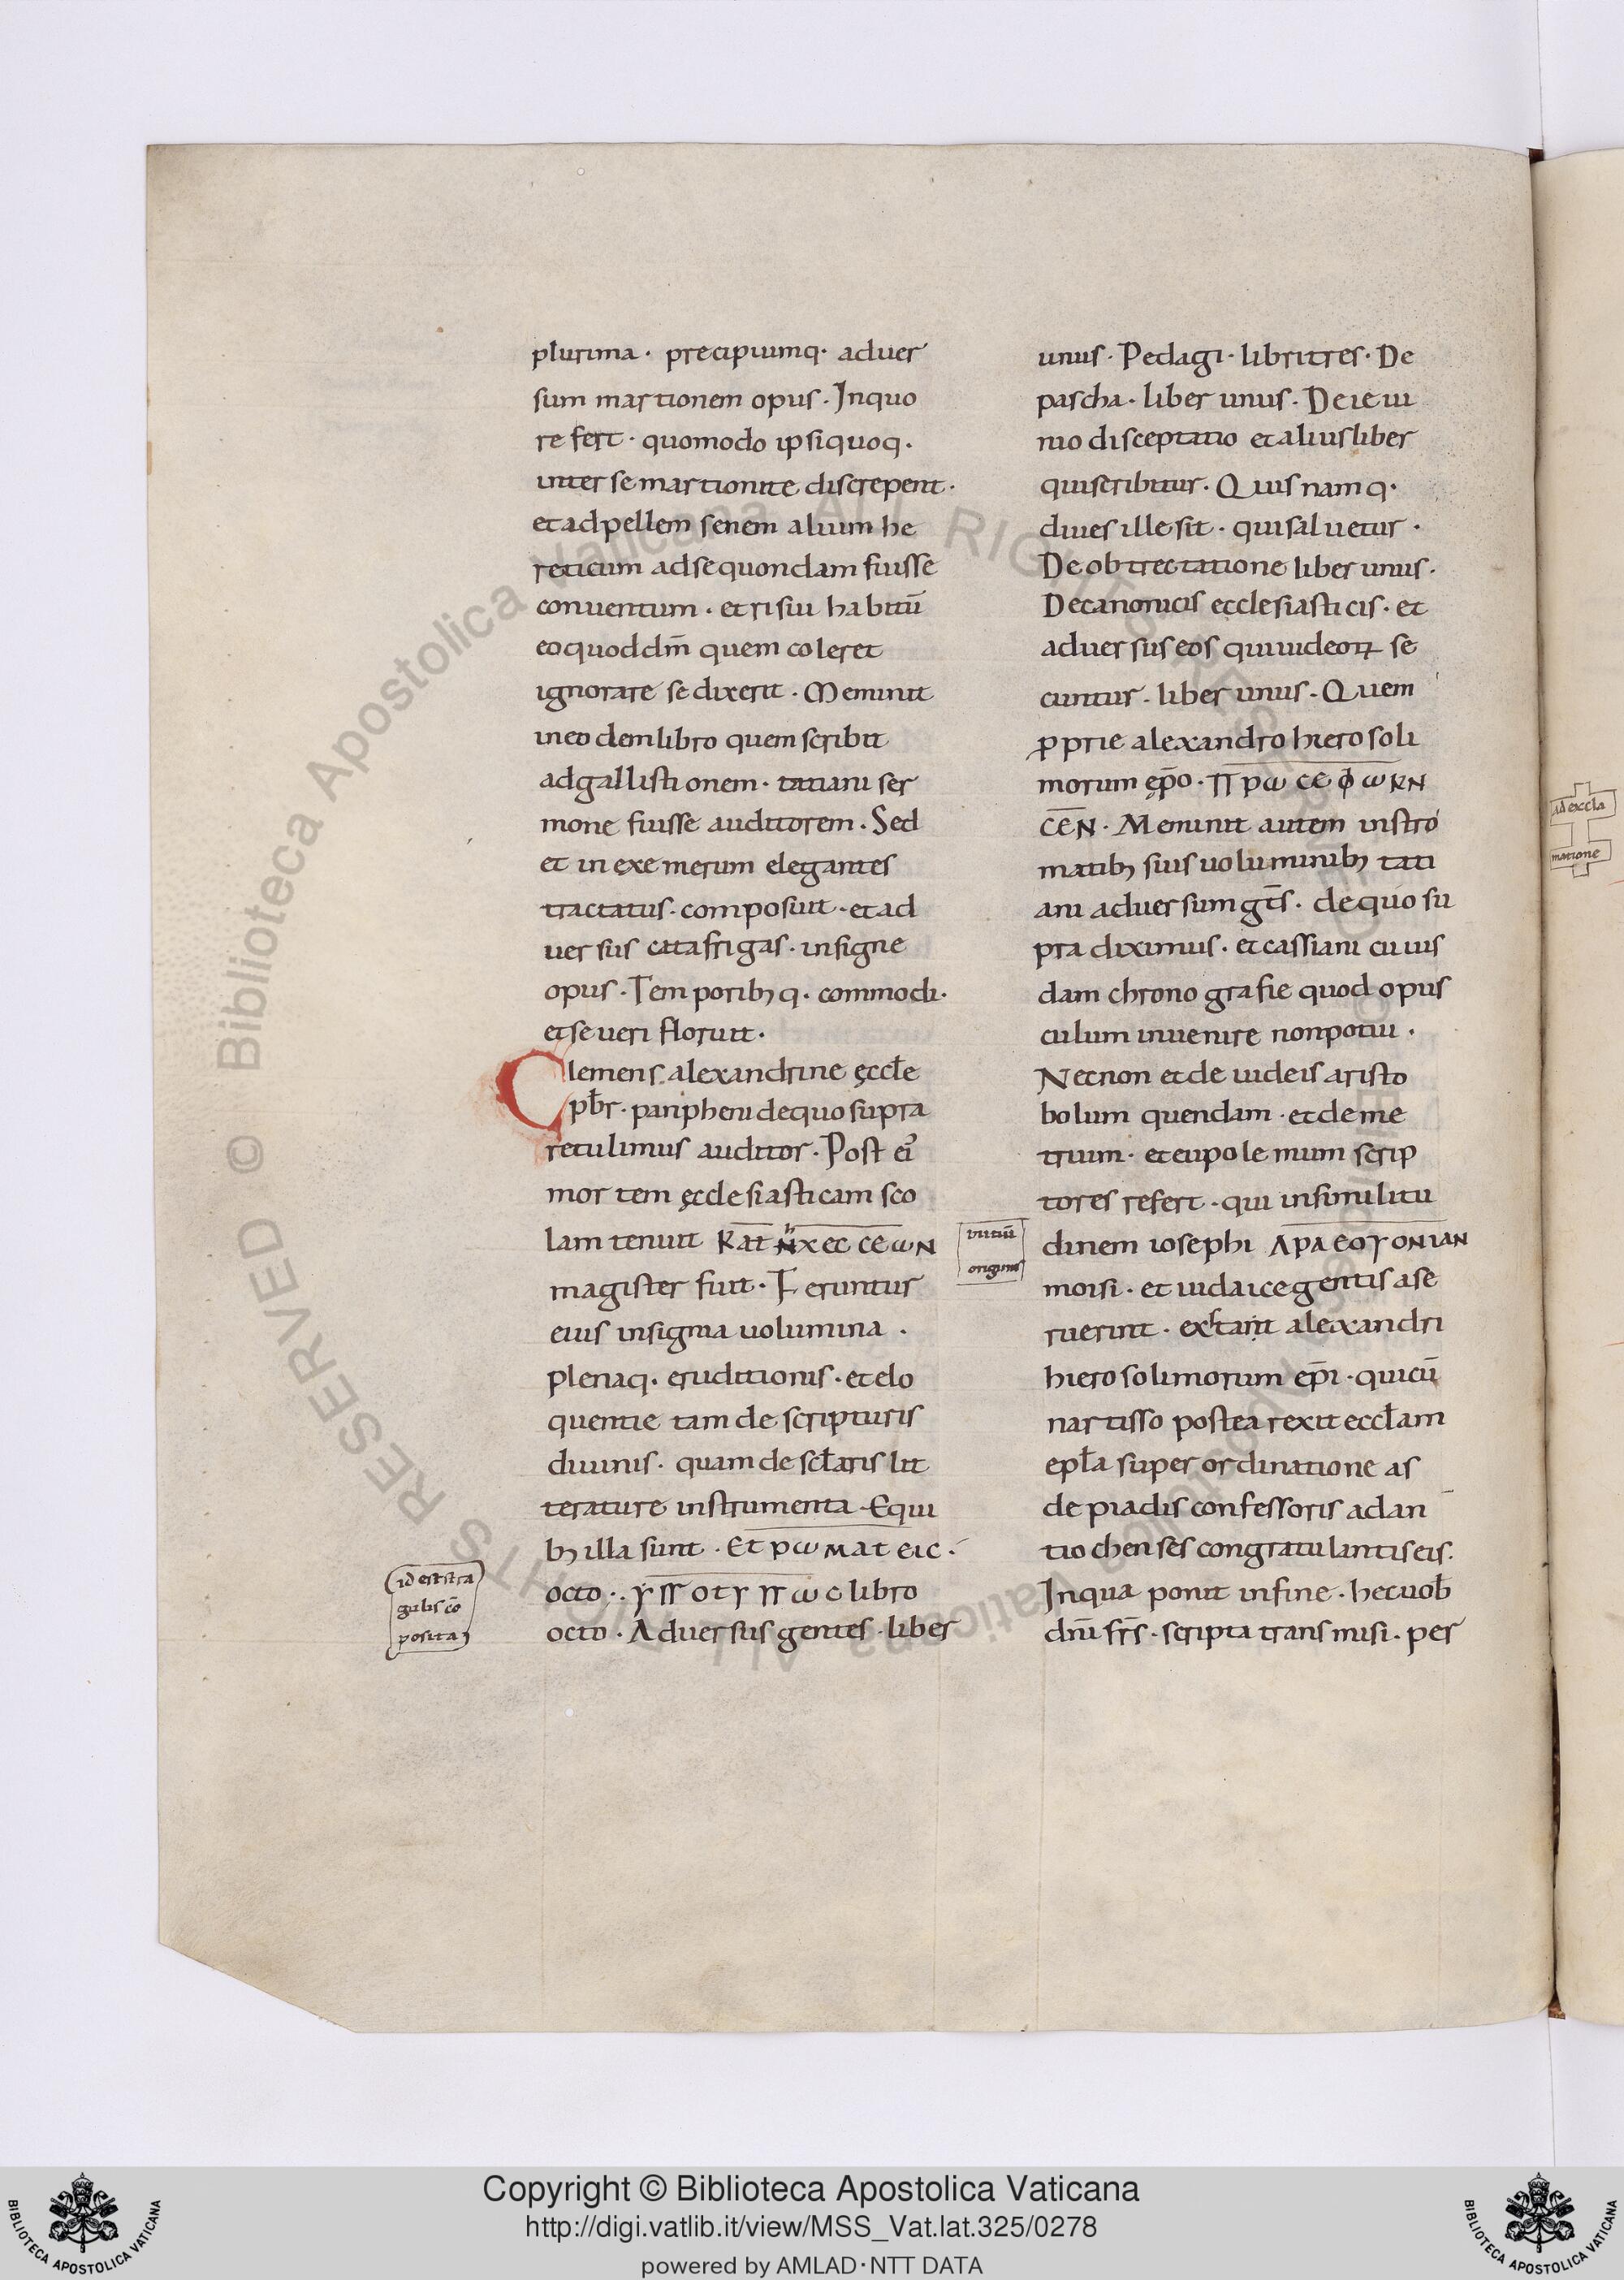 plurima · precipiumq · aduer
sum martionem opus · Inquo
re fert · quomodo ipsi quoq ·
inter se martionite discrepent ·
et adpellem senem alium he
reticum adse quondam fuisse
conuentum · et risui habitū
eo quod dm̄ quem coleret
ignorare se dixerit · Meminit
in eodem libro quem scribit
adgallistionem · tatiani ser
mone fuisse auditorem · Sed
et in exemerum elegantes
tractatus · composuit · et ad
uersus catafrigas · insigne
opus · Temporibꝫ q · commodi ·
et seueri floruit ·
Clemens alexandrine ęccłe
pb̄r · paripheni dequo supra
retulimus auditor · Post ei᾽
mortem ęcclesiasticam sco
lam tenuit
magister fuit · Feruntur
eius insignia uolumina ·
plenaq · eruditionis · et elo
quentie tam de scripturis
diuinis · quam de scłaris lit
terature instrumenta · Equi
bꝫ illa sunt · Єt pω мat єıc ·
id est stra
gulis cō
posita
octo · libro
octo · Aduersus gentes · liber
unus · Pedagi · libri tres · De
pascha · liber unus · De ieiu
nio disceptatio et alius liber
qui scribitur · Quis nam q ·
diues ille sit · qui saluetur ·
De obtrectatione liber unus ·
De canonicis ecclesiasticis · et
aduersus eos qui iudeoꝝ se
cuntur · liber unus · Quem
ꝓprie alexandro hierosoli
morum ep̄o · ππ pω cє φ ωKN
cєN · Meminit autem instro
matibꝫ suis uoluminibꝫ tati
ani aduersum gt̄s · de quo su
pra diximus · et cassiani cuius
dam chronografie quod opus
culum inuenire non potui ·
Necnon et de iudeis aristo
bolum quendam · et deme
trium · et eupolemum scrip
tores refert · qui in similitu
uitiū
originis
dinem iosephi
moisi · et iudaice gentis ase
ruerint · extant alexandri
hierosolimorum ep̄i · qui cū
nartisso postea rexit eccłam
epła super ordinatione as
depiadis confessoris ad an
tiochenses congratulantis eis ·
In qua ponit in fine · hec uob̄
dn̄i fr̄s · scripta transmisi · per
id excla
matione
Copyright © Biblioteca Apostolica Vaticana
http://digi.vatlib.it/view/MSS_Vat.lat.325/0278
powered by AMLAD·NTT DATA
BIBLIOTECA APOSTOLICA VATICANA
BIBLIOTECA APOSTOLICA VATICANA